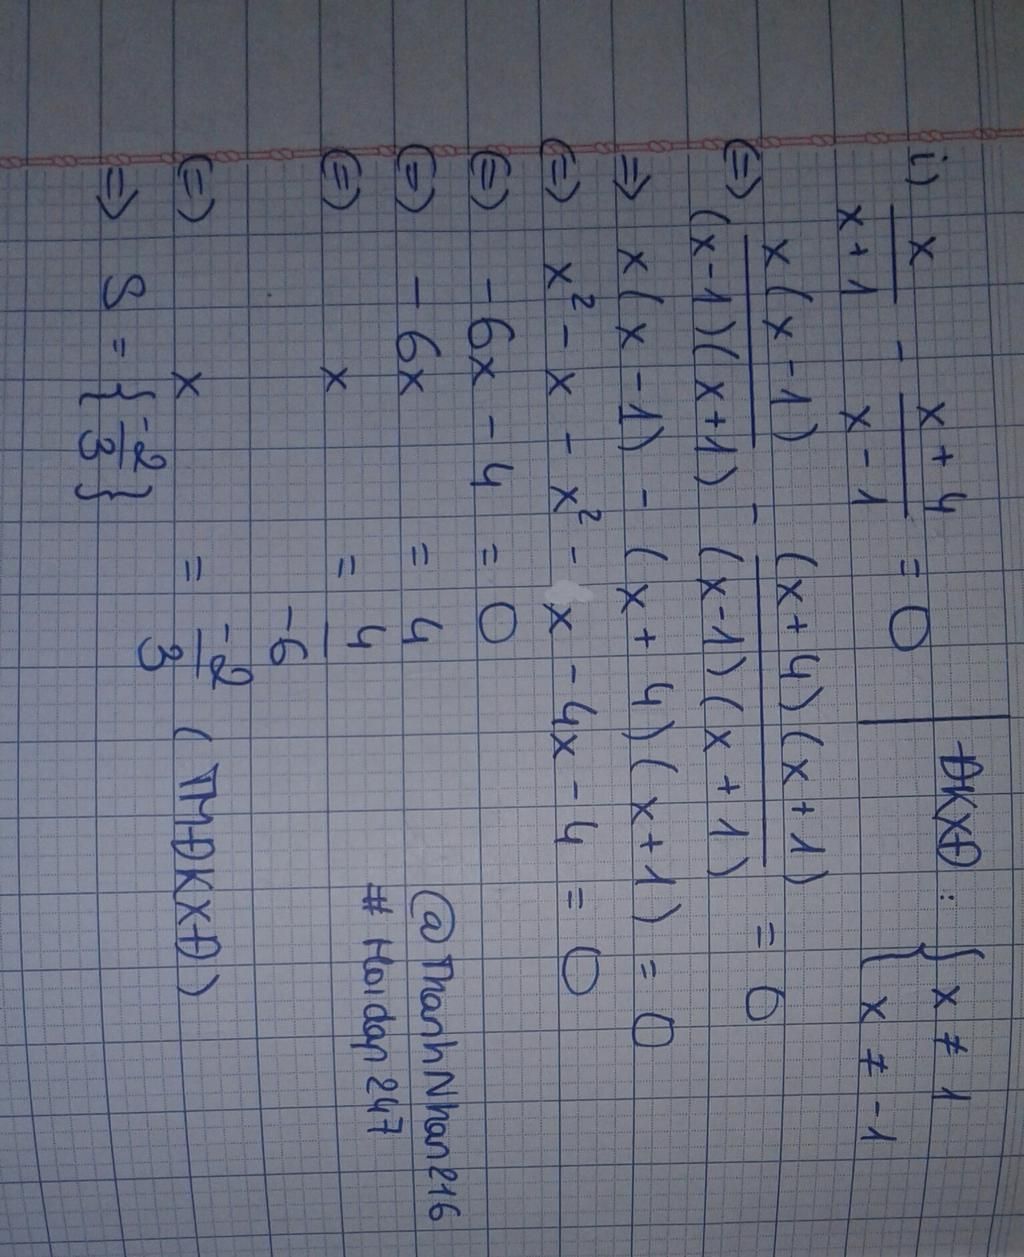 i) x/(x+1) - (x+4)/(x-1) = 0 | ĐKXĐ : { x ≠ 1
{ x ≠ -1
(=) x(x-1)/((x-1)(x+1)) - (x+4)(x+1)/((x-1)(x+1)) = 0
=> x(x-1) - (x+4)(x+1) = 0
(=) x² - x - x² - x - 4x - 4 = 0
(=) -6x - 4 = 0
(=) -6x = 4
(=) x = 4/-6
(=) x = -2/3 (TMĐKXĐ)
=> S = {-2/3}
@ThanhNhan216
# Hoidap247